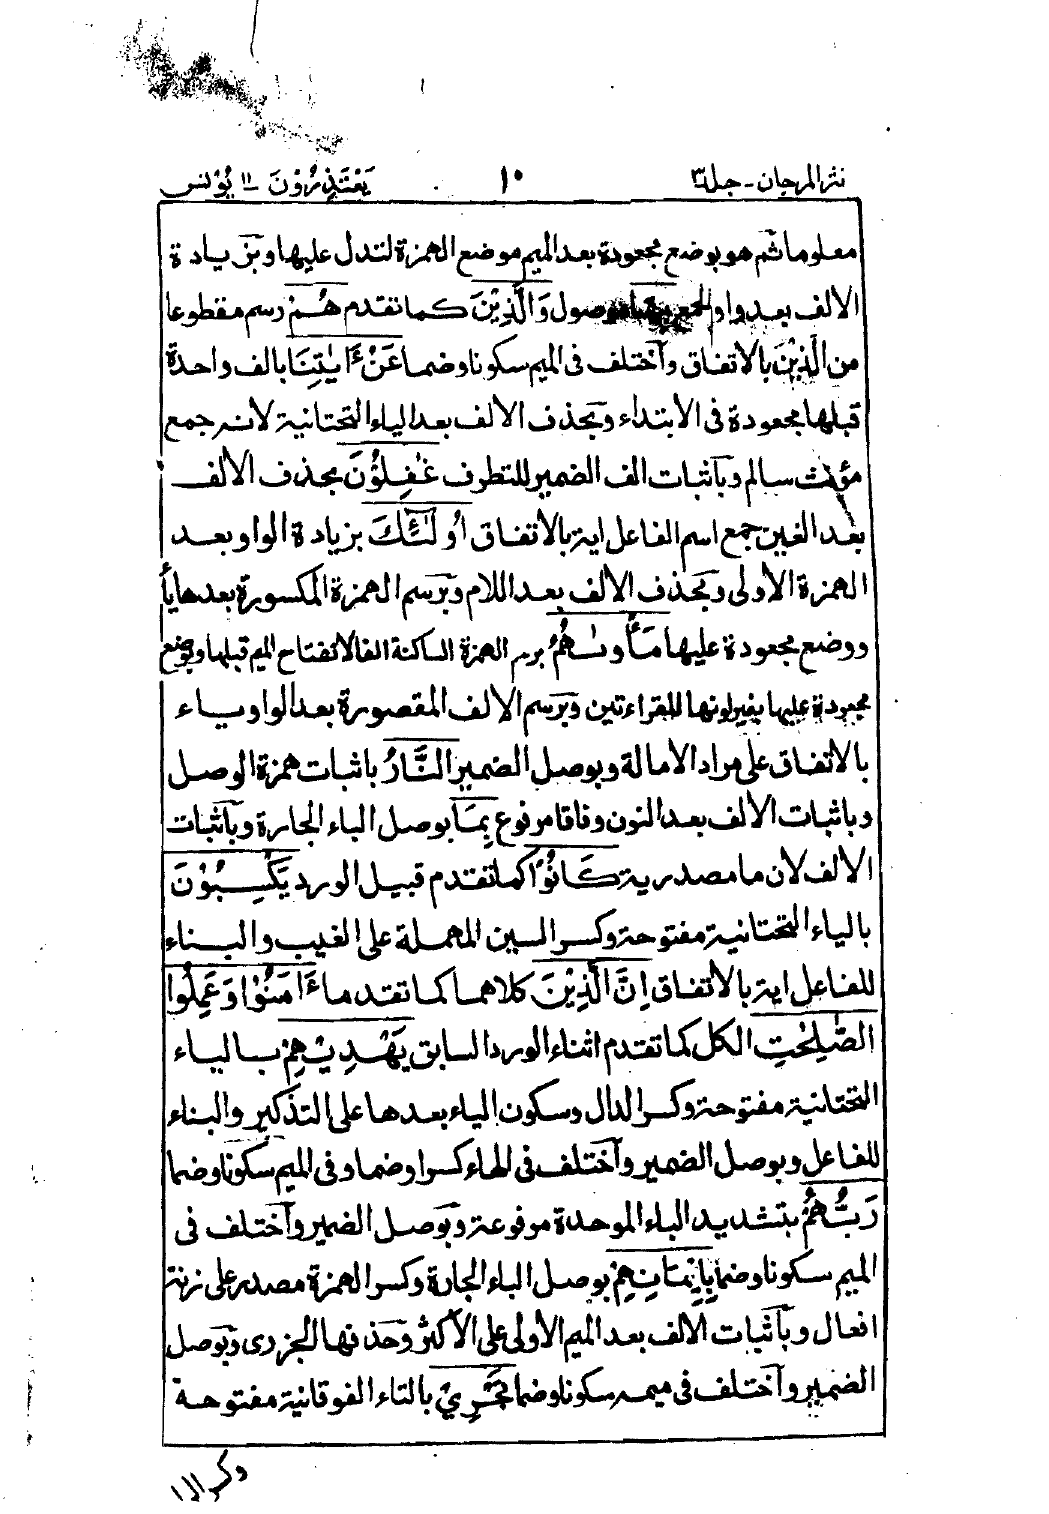 نثر المرجان - جلد ٣ ١٠ يَعْتَذِرُوْنَ ١١ يُوْنس
معلوما ثم هو بوضع مجعودة بعد الميم موضع الهمزة لتدل عليها وبزيادة
الالف بعد واو الجمع موصول وَالَّذِيْنَ كما تقدم هُمْ رسم مقطوعا
من الَّذِيْنَ بالاتفاق وآختلف فى الميم سكونا وضما عَنْ ءَايٰتِنَا بالف واحدة
قبلها مجعودة فى الابتداء وبحذف الالف بعد الياء التحتانية لانه جمع
مؤنث سالم وبآثبات الف الضمير للتطرف غٰفِلُوْنَ بحذف الالف
بعد الغين جمع اسم الفاعل اية بالاتفاق اُولٰٓئِكَ بزيادة الواو بعد
الهمزة الأولى وبحذف الالف بعد اللام وبرسم الهمزة المكسورة بعدها يأ
ووضع مجعودة عليها مَأْوٰىهُمُ برسم الهمزة الساكنة الفا لانفتاح الميم قبلها وبوضع
مجعودة عليها بغير لونها للقراءتين وبرسم الالف المقصورة بعد الواو ياء
بالاتفاق على مراد الامالة وبوصل الضمير النَّارُ باثبات همزة الوصل
وباثبات الالف بعد النون وفاقا مرفوع بِمَا بوصل الباء الجارة وبآثبات
الالف لان ما مصدرية كَانُوْا كما تقدم قبيل الورد يَكْسِبُوْنَ
بالياء التحتانية مفتوحة وكسر السين المهملة على الغيب والبناء
للفاعل اية بالاتفاق اِنَّ الَّذِيْنَ كلاهما كما تقدما ءَامَنُوْا وَعَمِلُوا
الصّٰلِحٰتِ الكل كما تقدم اثناء الورد السابق يَهْدِيْهِمْ بالياء
التحتانية مفتوحة وكسر الدال وسكون الياء بعدها على التذكير والبناء
للفاعل وبوصل الضمير وآختلف فى الهاء كسرا وضما وفى الميم سكونا وضما
رَبُّهُمْ بتشديد الباء الموحدة مرفوعة وبوصل الضمير وآختلف فى
الميم سكونا وضما بِاِيْمَانِهِمْ بوصل الباء الجارة وكسر الهمزة مصدر على زنة
افعال وبآثبات الالف بعد الميم الأولى على الأكثر وحذفها الجزرى وبوصل
الضمير وآختلف فى ميمه سكونا وضما تَجْرِيْ بالتاء الفوقانية مفتوحة
وكسر الرا